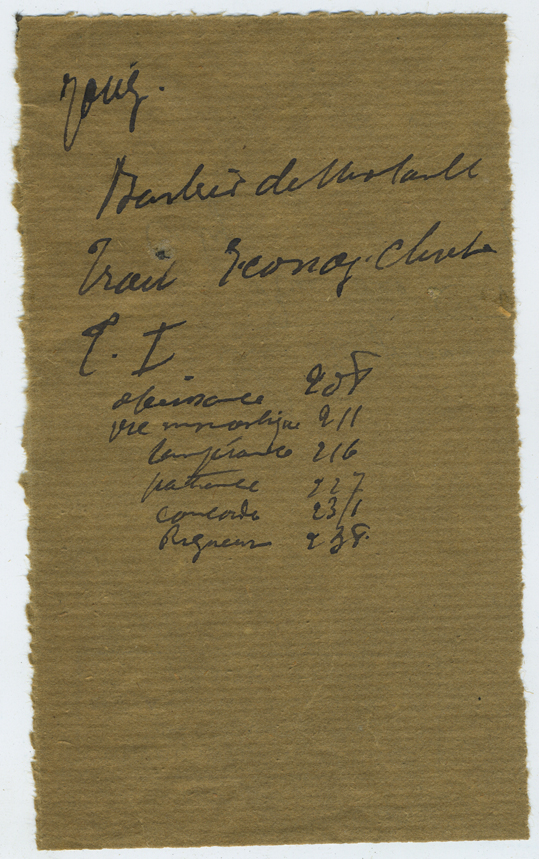 Barbier de Montault
Trait Iconog. Chret
T. I
obeissance 208
vie monastique 211
temperance 216
patience 227
concorde 231
Rigueur 238.